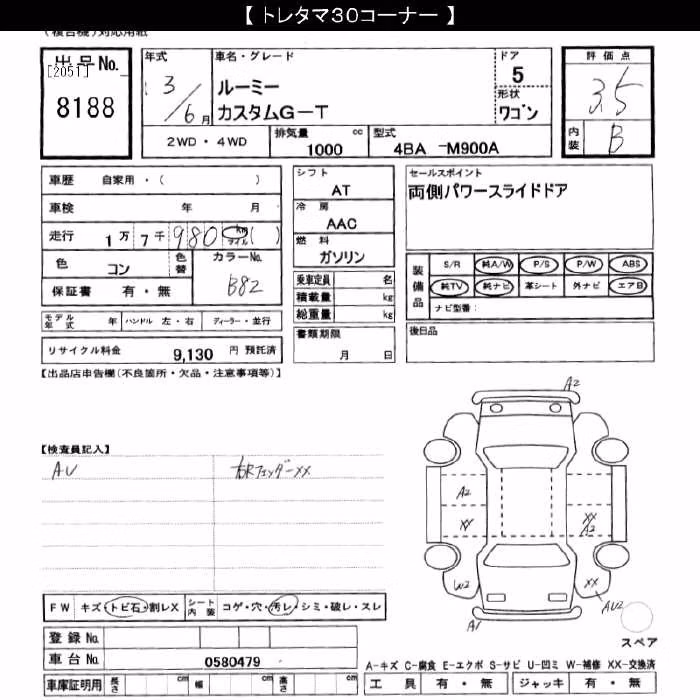 【 トレタマ30コーナー 】
(複合機)対応用紙
出品No.
[2051]
8188
年式
3/6月
車名・グレード
ルーミー
カスタムG-T
ドア
5
形状
ワゴン
評価点
3.5
内装
B
2WD・4WD
排気量 cc
1000
型式
4BA -M900A
車歴 自家用・( )
車検 年 月
走行 1万7千980 km マイル ( )
色 コン
色替
カラーNo.
B82
保証書 有・無
モデル年式 年 ハンドル 左・右 ディーラー・並行
リサイクル料金 9,130 円 預託済
シフト
AT
冷房
AAC
燃料
ガソリン
乗車定員 名
積載量 kg
総重量 kg
書類期限
月 日
セールスポイント
両側パワースライドドア
装備品
S/R 純A/W P/S P/W ABS
純TV 純ナビ 革シート 外ナビ エアB
ナビ型番:
後日品
【出品店申告欄(不良箇所・欠品・注意事項等)】
【検査員記入】
AU
右Rフェンダーxx
A2
A2
XX
XX
A2
W2
XX
AU2
A1
スペア
FW キズ・トビ石・割レX
シート内装 コゲ・穴・汚レ・シミ・破レ・スレ
登録No.
車台No. 0580479
車庫証明用 長さ cm 幅 cm 高さ cm
A-キズ C-腐食 E-エクボ S-サビ U-凹ミ W-補修 XX-交換済
工具 有・無 ジャッキ 有・無